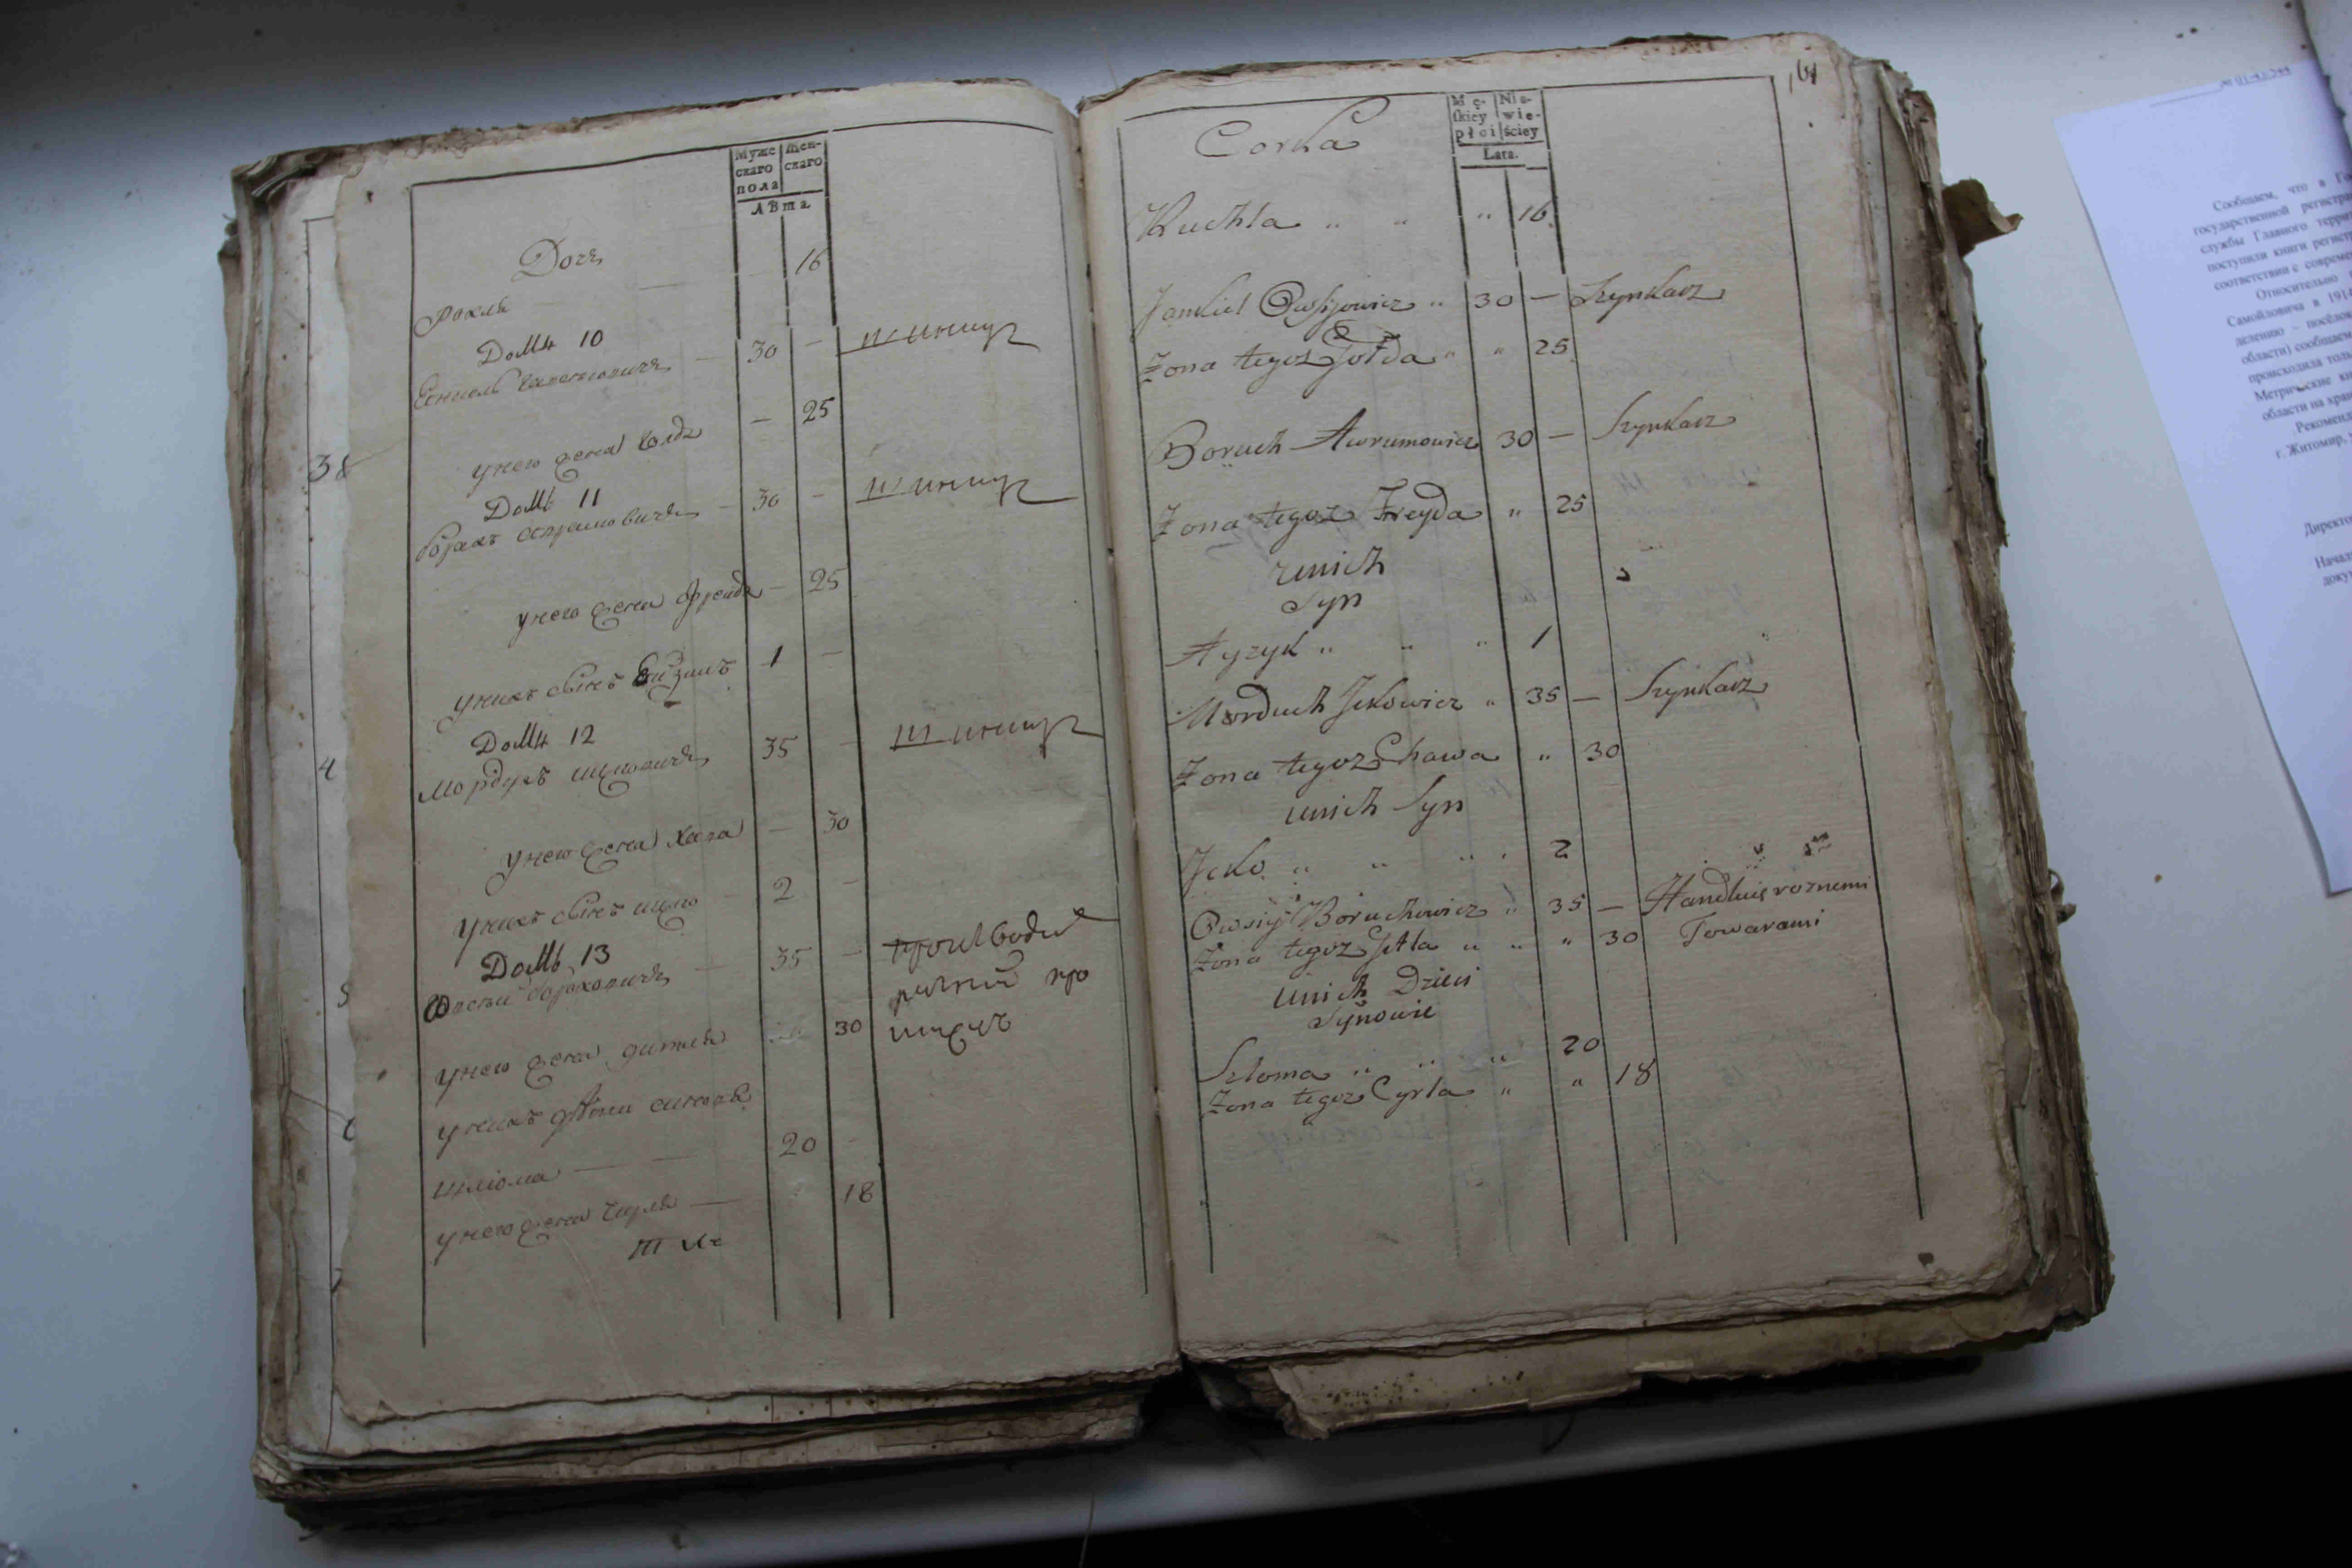 Муже
скаго
пола
Жен-
скаго
лѣта
Дочь
16
Рохля
Домъ 10
30 —
шинкуе
у него жена Голда — 25
38
Домъ 11
Борахъ Аврамовичъ — 30 —
шинкуе
у него жена Фрейда — 25
у нихъ сынъ Айзикъ 1 —
Домъ 12
4
Мордухъ Ицковичъ 35 —
шинкуе
у него жена Хава — 30
у нихъ сынъ Ицко — 2 —
Домъ 13
5
Овсей Борохович — 35 —
производи
у него жена 30
у нихъ дѣти синовя
Шліома — — 20 —
у него жена Цирля — 18
161
Corka
Mę-
skiey
płci
Nie-
wie-
ściey
Lata.
Ruchla " " " 16
Jankiel Owsijowicz " 30 — Szynkarz
Żona tegoz Gołda " " 25
Boruch Awrumowicz 30 — Szynkarz
Żona tegoz Freyda " 25
unich
Syn
Ayzyk " " " 1
Morduch Ickowicz " 35 — Szynkarz
Żona tegoz Chawa " 30
unich Syn
Icko " " " 2
Owsiy Boruchowicz " 35 — Handluie roznemi
Żona tegoz " " " 30 Towarami
unich Dzieci
Synowie
Szloma " " " 20
Żona tegoz Cyrla " " 18
Сообщаем, что в Го
государственной регистра
службы Главного террит
поступили книги регистр
соответствии с современ
Относительно
Самойловича в 1914
делению – посёлок
области) сообщаем
происходила толь
Метрические кн
области на хран
Рекоменд
г. Житомир,
Директо
Начал
доку